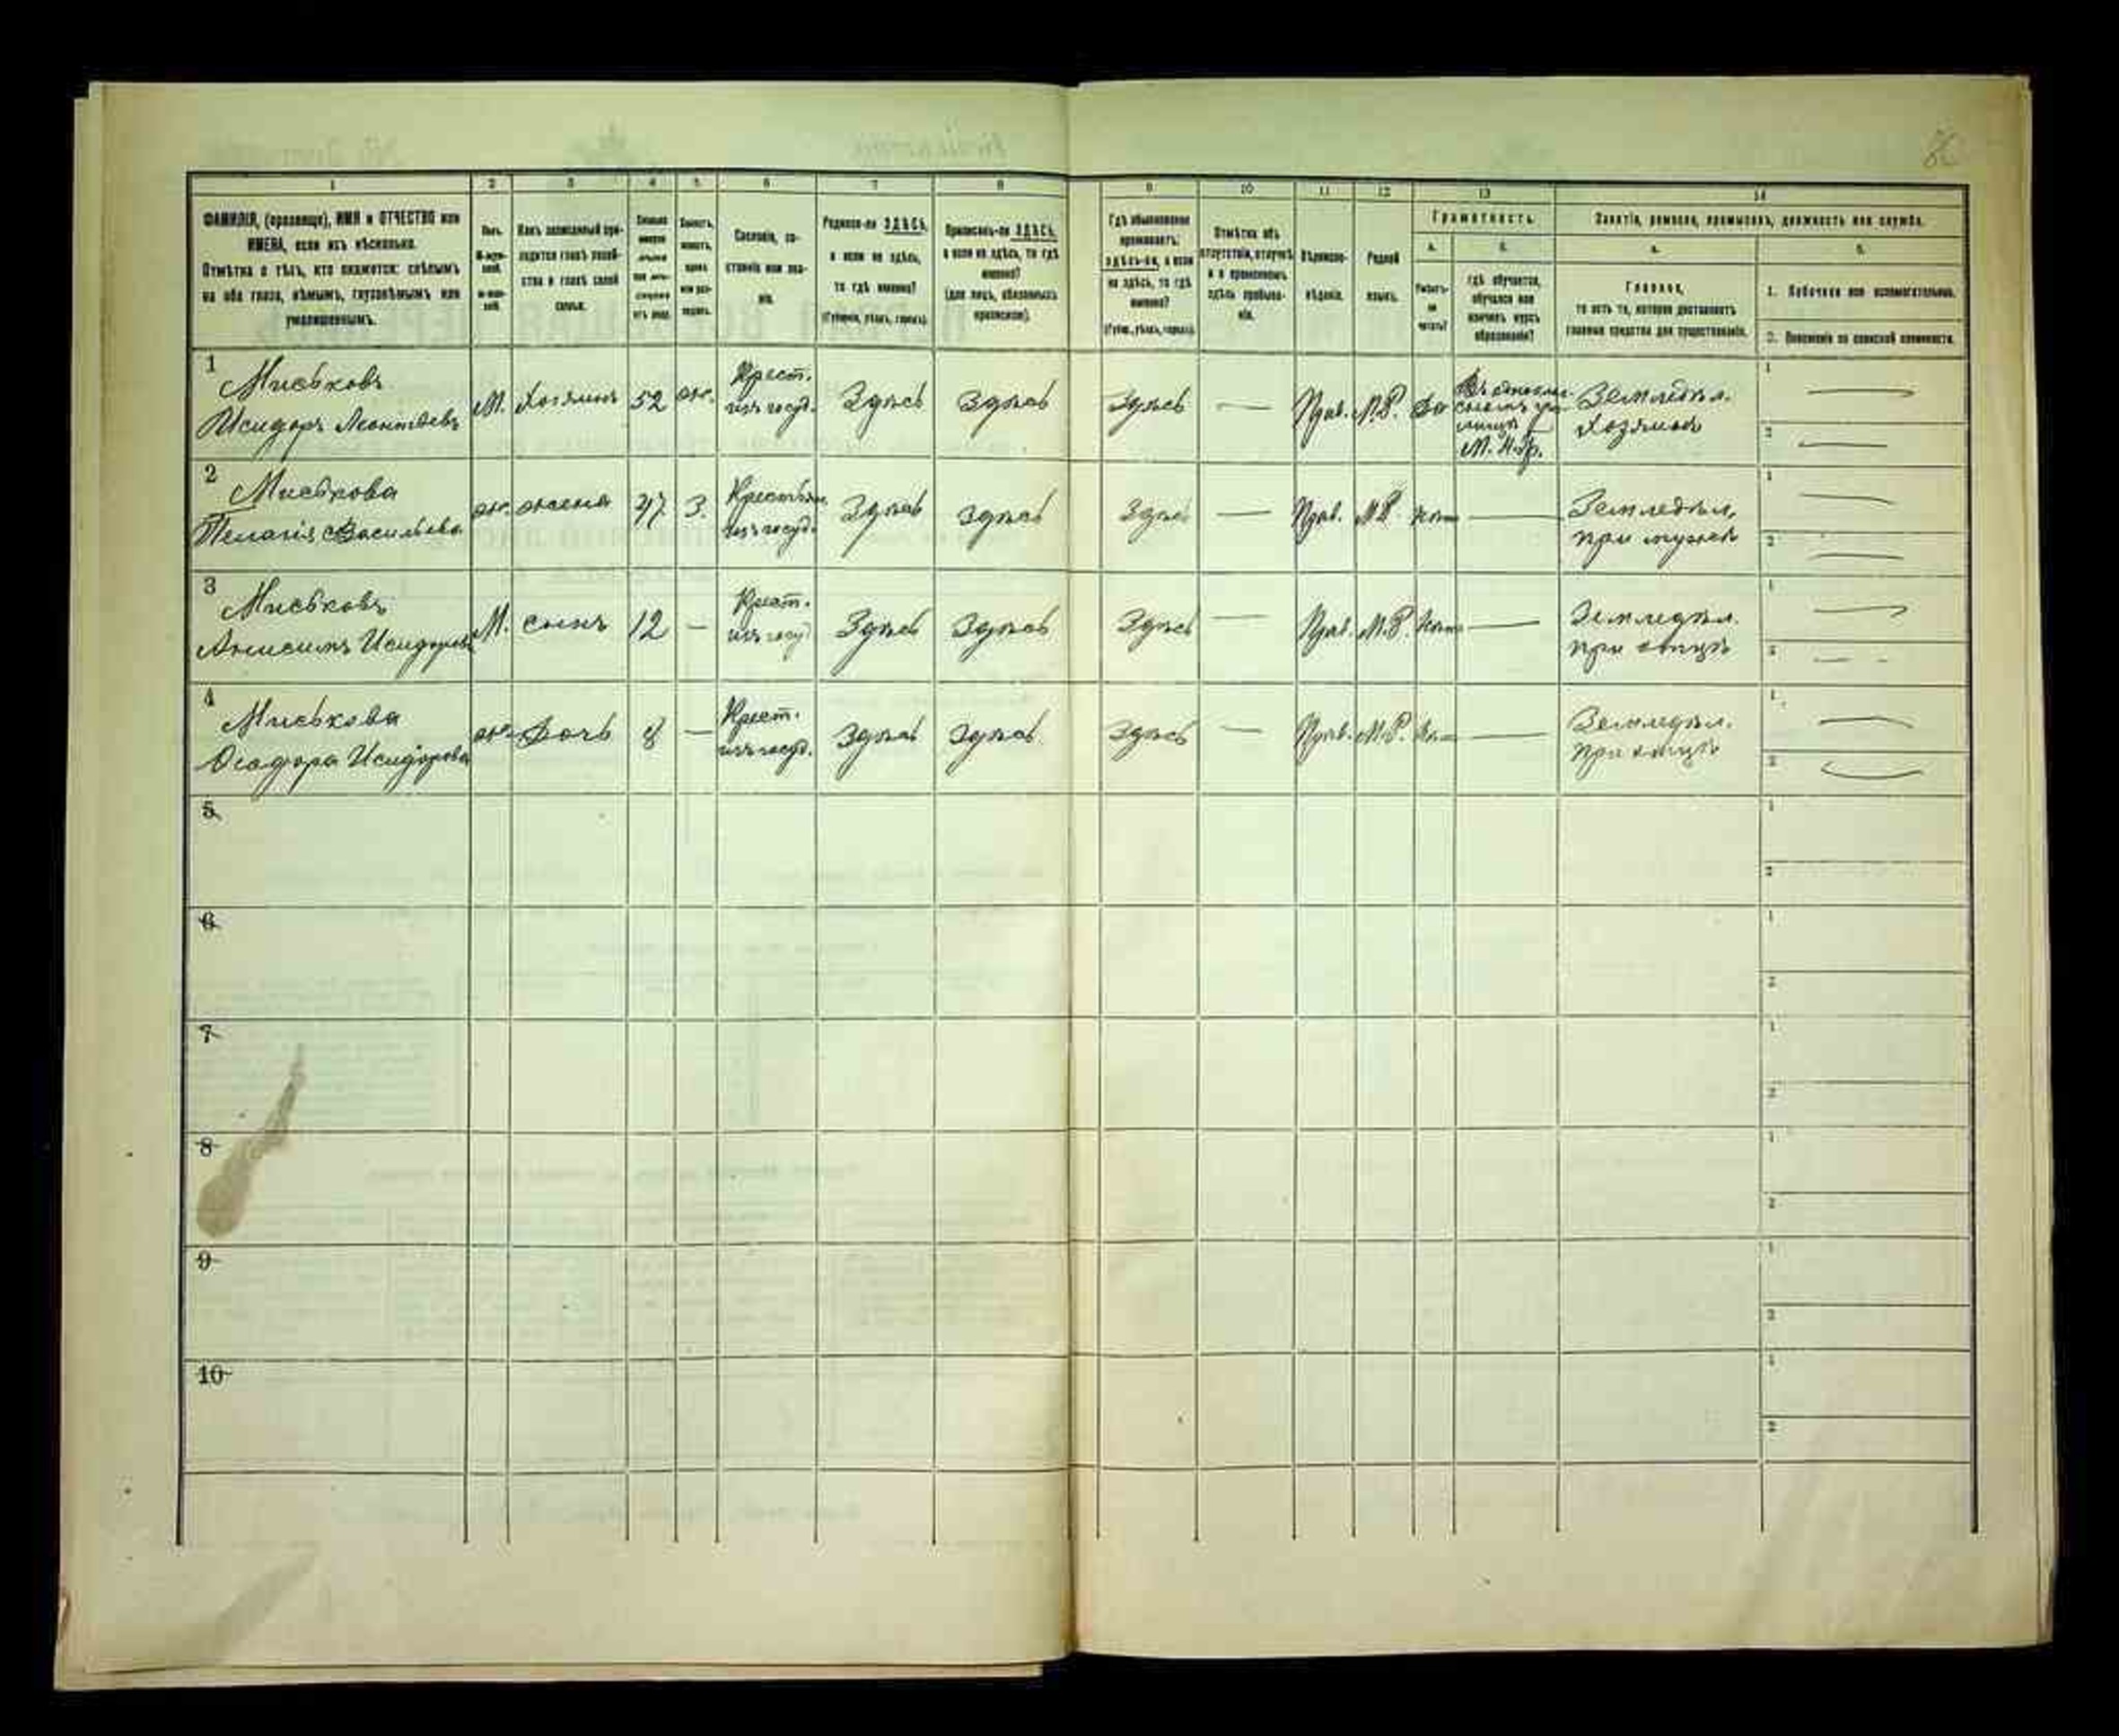 1 2 3 4 5 6 7 8 9 10 11 12 13 14
ФАМИЛІЯ, (прозвище), ИМЯ и ОТЧЕСТВО или
ИМЕНА, если ихъ нѣсколько.
Отмѣтка о тѣхъ, кто окажется: слѣпымъ
на оба глаза, нѣмымъ, глухонѣмымъ или
умалишеннымъ.
Полъ.
М-муж-
ской.
Ж-жен-
скій.
Какъ записанный при-
ходится главѣ хозяй-
ства и главѣ своей
семьи.
Сколько
Холостъ,
женатъ,
вдовъ
или раз-
веденъ.
Сословіе, со-
стояніе или зва-
ніе.
Родился-ли ЗДѢСЬ,
а если не здѣсь,
то гдѣ именно?
(Губернія, уѣздъ, городъ).
Приписанъ-ли ЗДѢСЬ,
а если не здѣсь, то гдѣ
именно?
(для лицъ, обязанныхъ
припискою).
Гдѣ обыкновенно
проживаетъ:
здѣсь-ли, а если
не здѣсь, то гдѣ
именно?
(Губер., уѣздъ, городъ).
Отмѣтка объ
отсутствіи, отлучкѣ
и о временномъ
здѣсь пребыва-
ніи.
Вѣроиспо-
вѣданіе.
Родной
языкъ.
Грамотность.
а. б.
Умѣетъ-
ли
читать?
гдѣ обучается,
обучался или
кончилъ курсъ
образованія?
Занятіе, ремесло, промыселъ, должность или служба.
а. б.
Главное,
то есть то, которое доставляетъ
главныя средства для существованія.
1. Побочное или вспомогательное.
2. Положеніе по воинской повинности.
1
Миськовъ
Исидоръ Леонтьевъ
М. Хозяинъ 52 ж.
Крест.
изъ госуд.
Здѣсь Здѣсь Здѣсь — Прав. М.Р. Да
М. Н. Пр.
Земледѣл.
Хозяинъ
1 —
2 —
2
Миськова
Пелагія Васильева
ж. жена 47 З.
Крестьян.
изъ госуд.
Здѣсь Здѣсь Здѣсь — Прав. М.Р. Нѣтъ —
Земледѣл.
при мужѣ
1 —
2 —
3
Миськовъ
Анисимъ Исидоровъ
М. сынъ 12 —
Крест.
изъ госуд.
Здѣсь Здѣсь Здѣсь — Прав. М.Р. Нѣтъ —
Земледѣл.
при отцѣ
1 —
2 —
4
Миськова
Ѳеодора Исидорова
ж. Дочь 8 —
Крест.
изъ госуд.
Здѣсь Здѣсь Здѣсь — Прав. М.Р. Нѣтъ —
Земледѣл.
при отцѣ
1 —
2 —
5
1
2
6
1
2
7
1
2
8
1
2
9
1
2
10
1
2